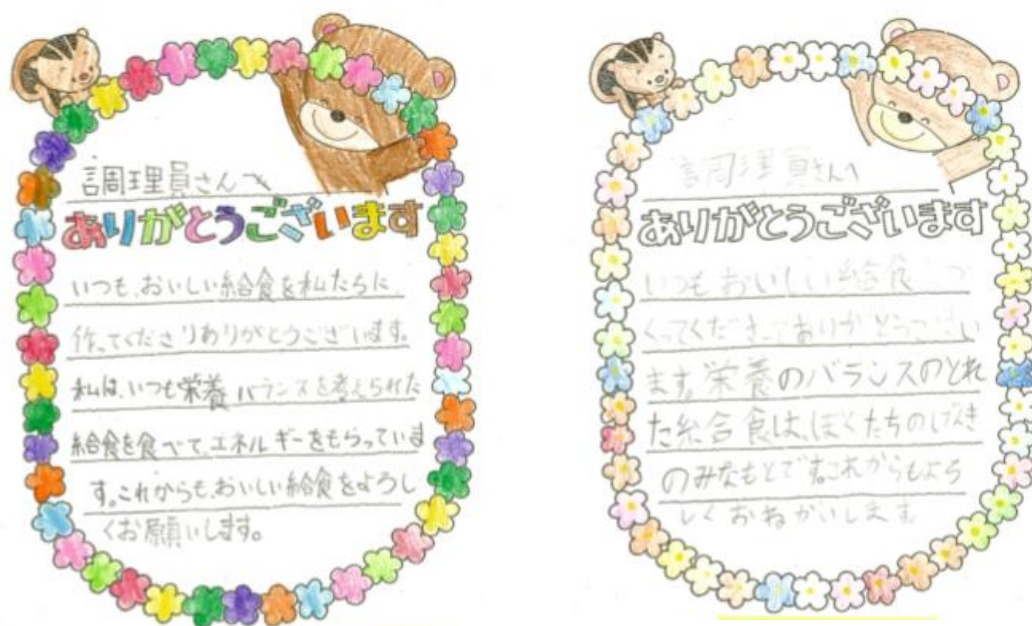 調理員さんへ
ありがとうございます
いつも、おいしい給食を私たちに、
作ってくださりありがとうございます。
私は、いつも栄養バランスを考えられた
給食を食べて、エネルギーをもらっていま
す。これからも、おいしい給食をよろし
くお願いします。
調理員さんへ
ありがとうございます
いつもおいしい給食をつ
くってくださってありがとうござい
ます。栄養のバランスのとれ
た給食は、ぼくたちのげんき
のみなもとです。これからもよろ
しくおねがいします。